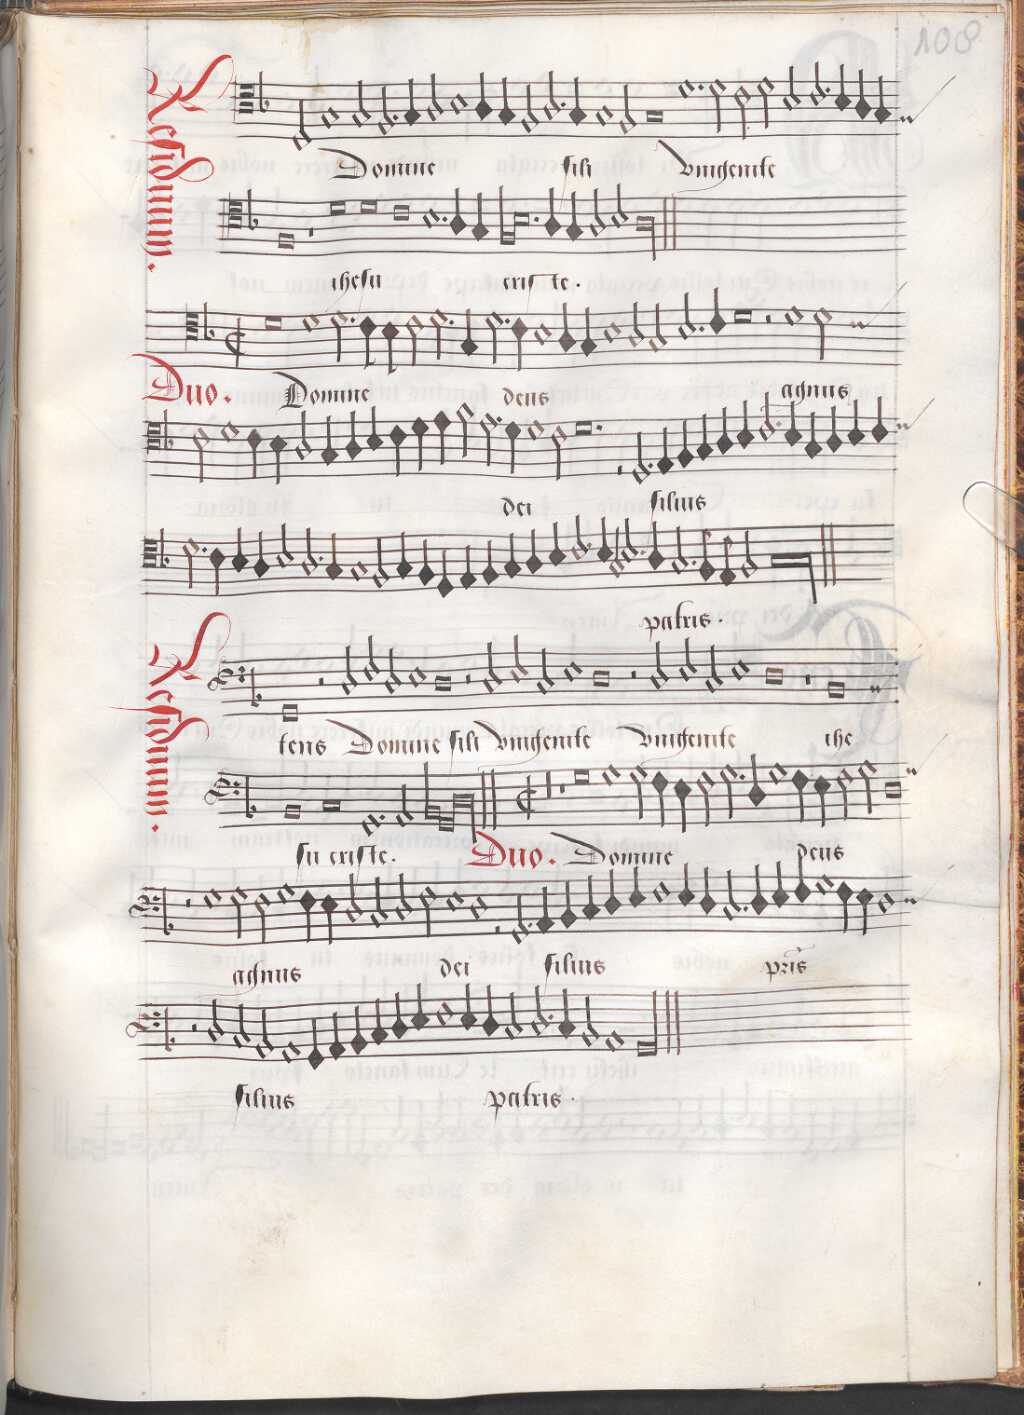 108
Residuum.
Domine fili Vnigenite
ihesu criste.
Duo. Domine deus agnus
dei filius
patris.
Residuum.
tens Domine fili Vnigenite Vnigenite ihe
su criste. Duo. Domine deus
agnus dei filius pr̃is
filius patris.